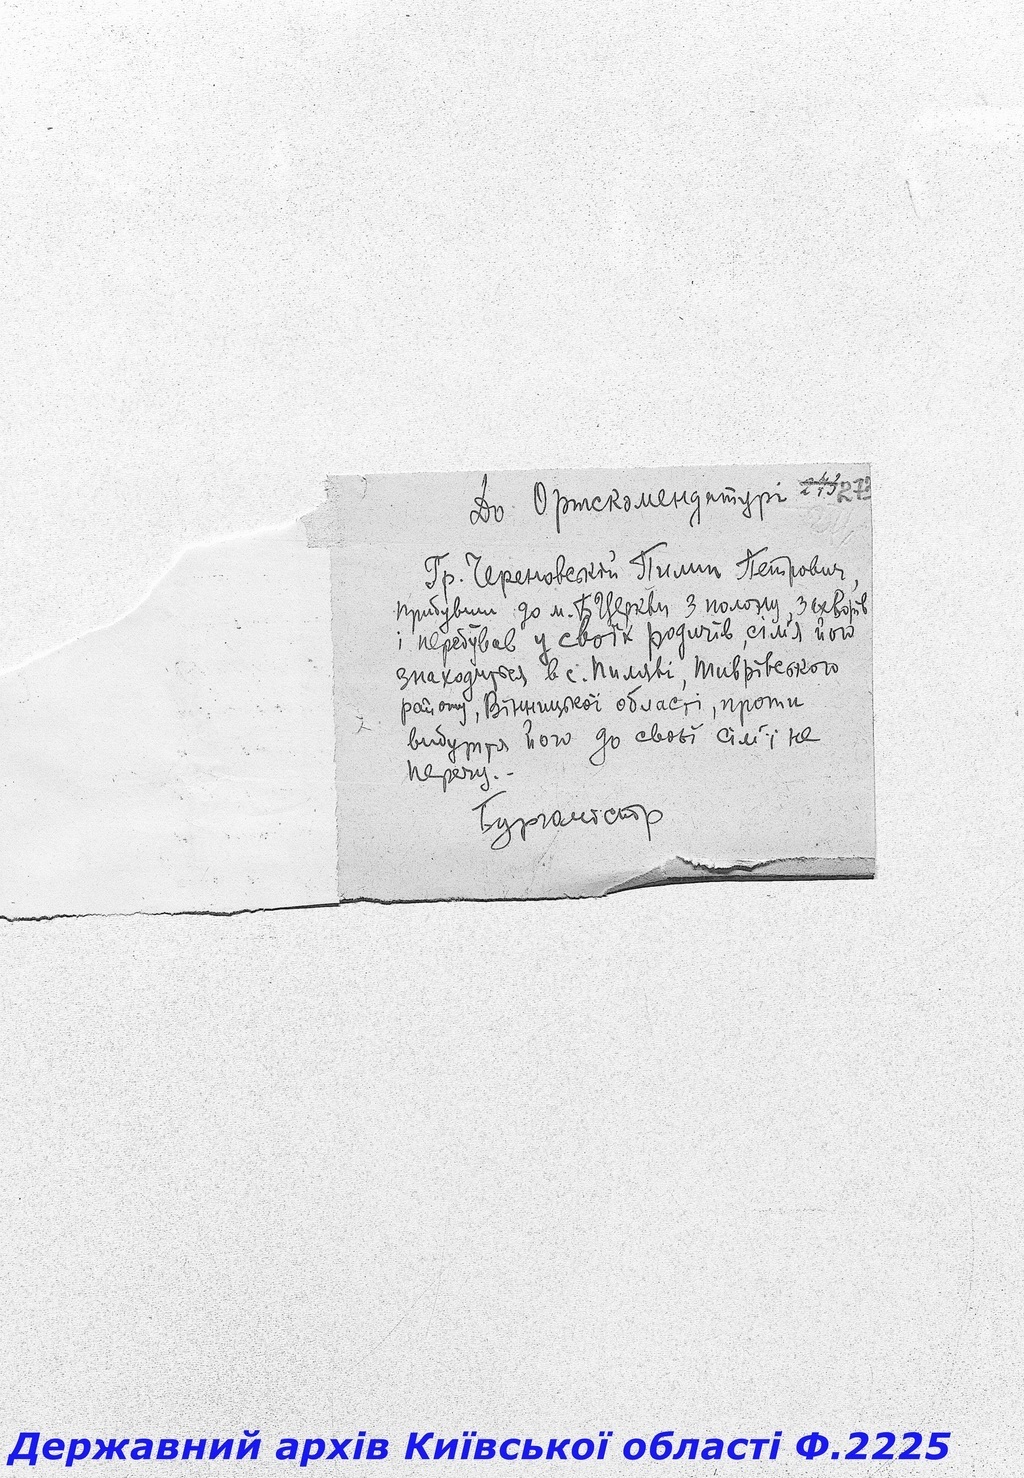 До Ортскомендатурі 273
Гр. Череповській Пилип Петрович,
прибувши до м. Б Церкви з полону, захворів
і перебував у своїх родичів, сім'я його
знаходиться в с. Пиляві, Тиврівського
району, Вінницької області, проти
вибуття його до своєї сім'ї не
перечу.-
Бургомістр
Державний архів Київської області Ф.2225